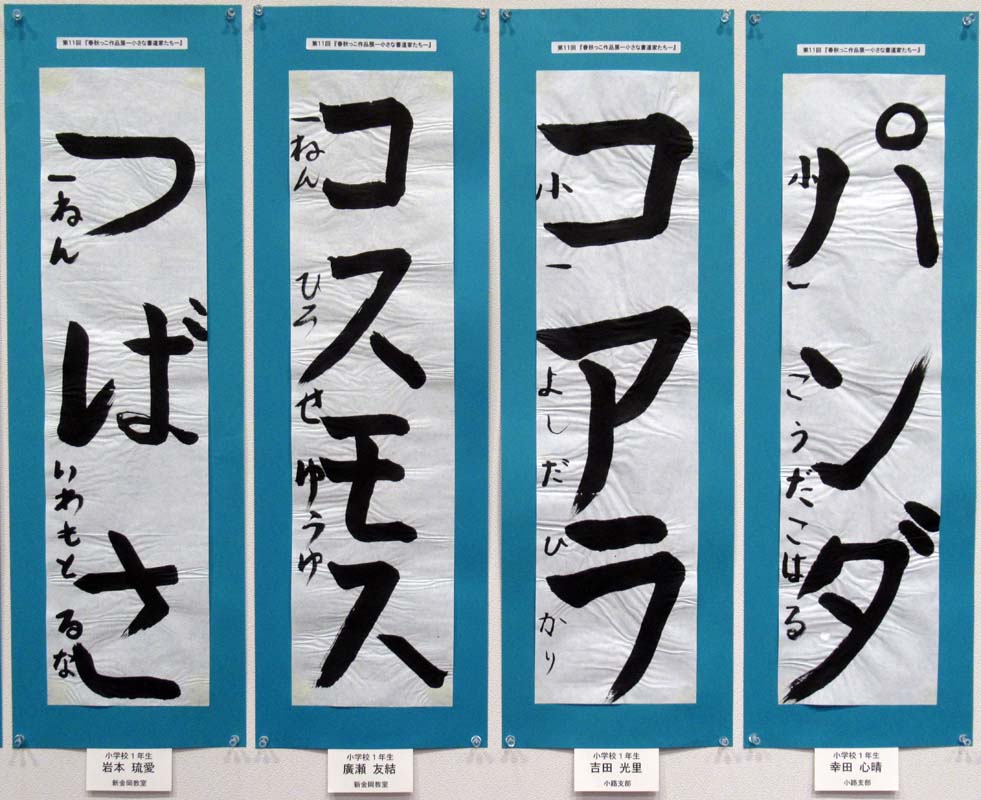 第11回 『春秋っこ作品展ー小さな書道家たちー』
パンダ
小一 こうだこはる
小学校1年生
幸田 心晴
小路支部
第11回 『春秋っこ作品展ー小さな書道家たちー』
コアラ
小一 よしだ ひかり
小学校1年生
吉田 光里
小路支部
第11回 『春秋っこ作品展ー小さな書道家たちー』
コスモス
一ねん ひろせ ゆうゆ
小学校1年生
廣瀬 友結
新金岡教室
第11回 『春秋っこ作品展ー小さな書道家たちー』
つばさ
一ねん いわもと るな
小学校1年生
岩本 琉愛
新金岡教室